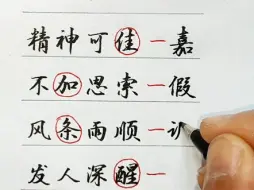 精神可佳一嘉
不加思索一假
风条雨顺一
发人深醒一